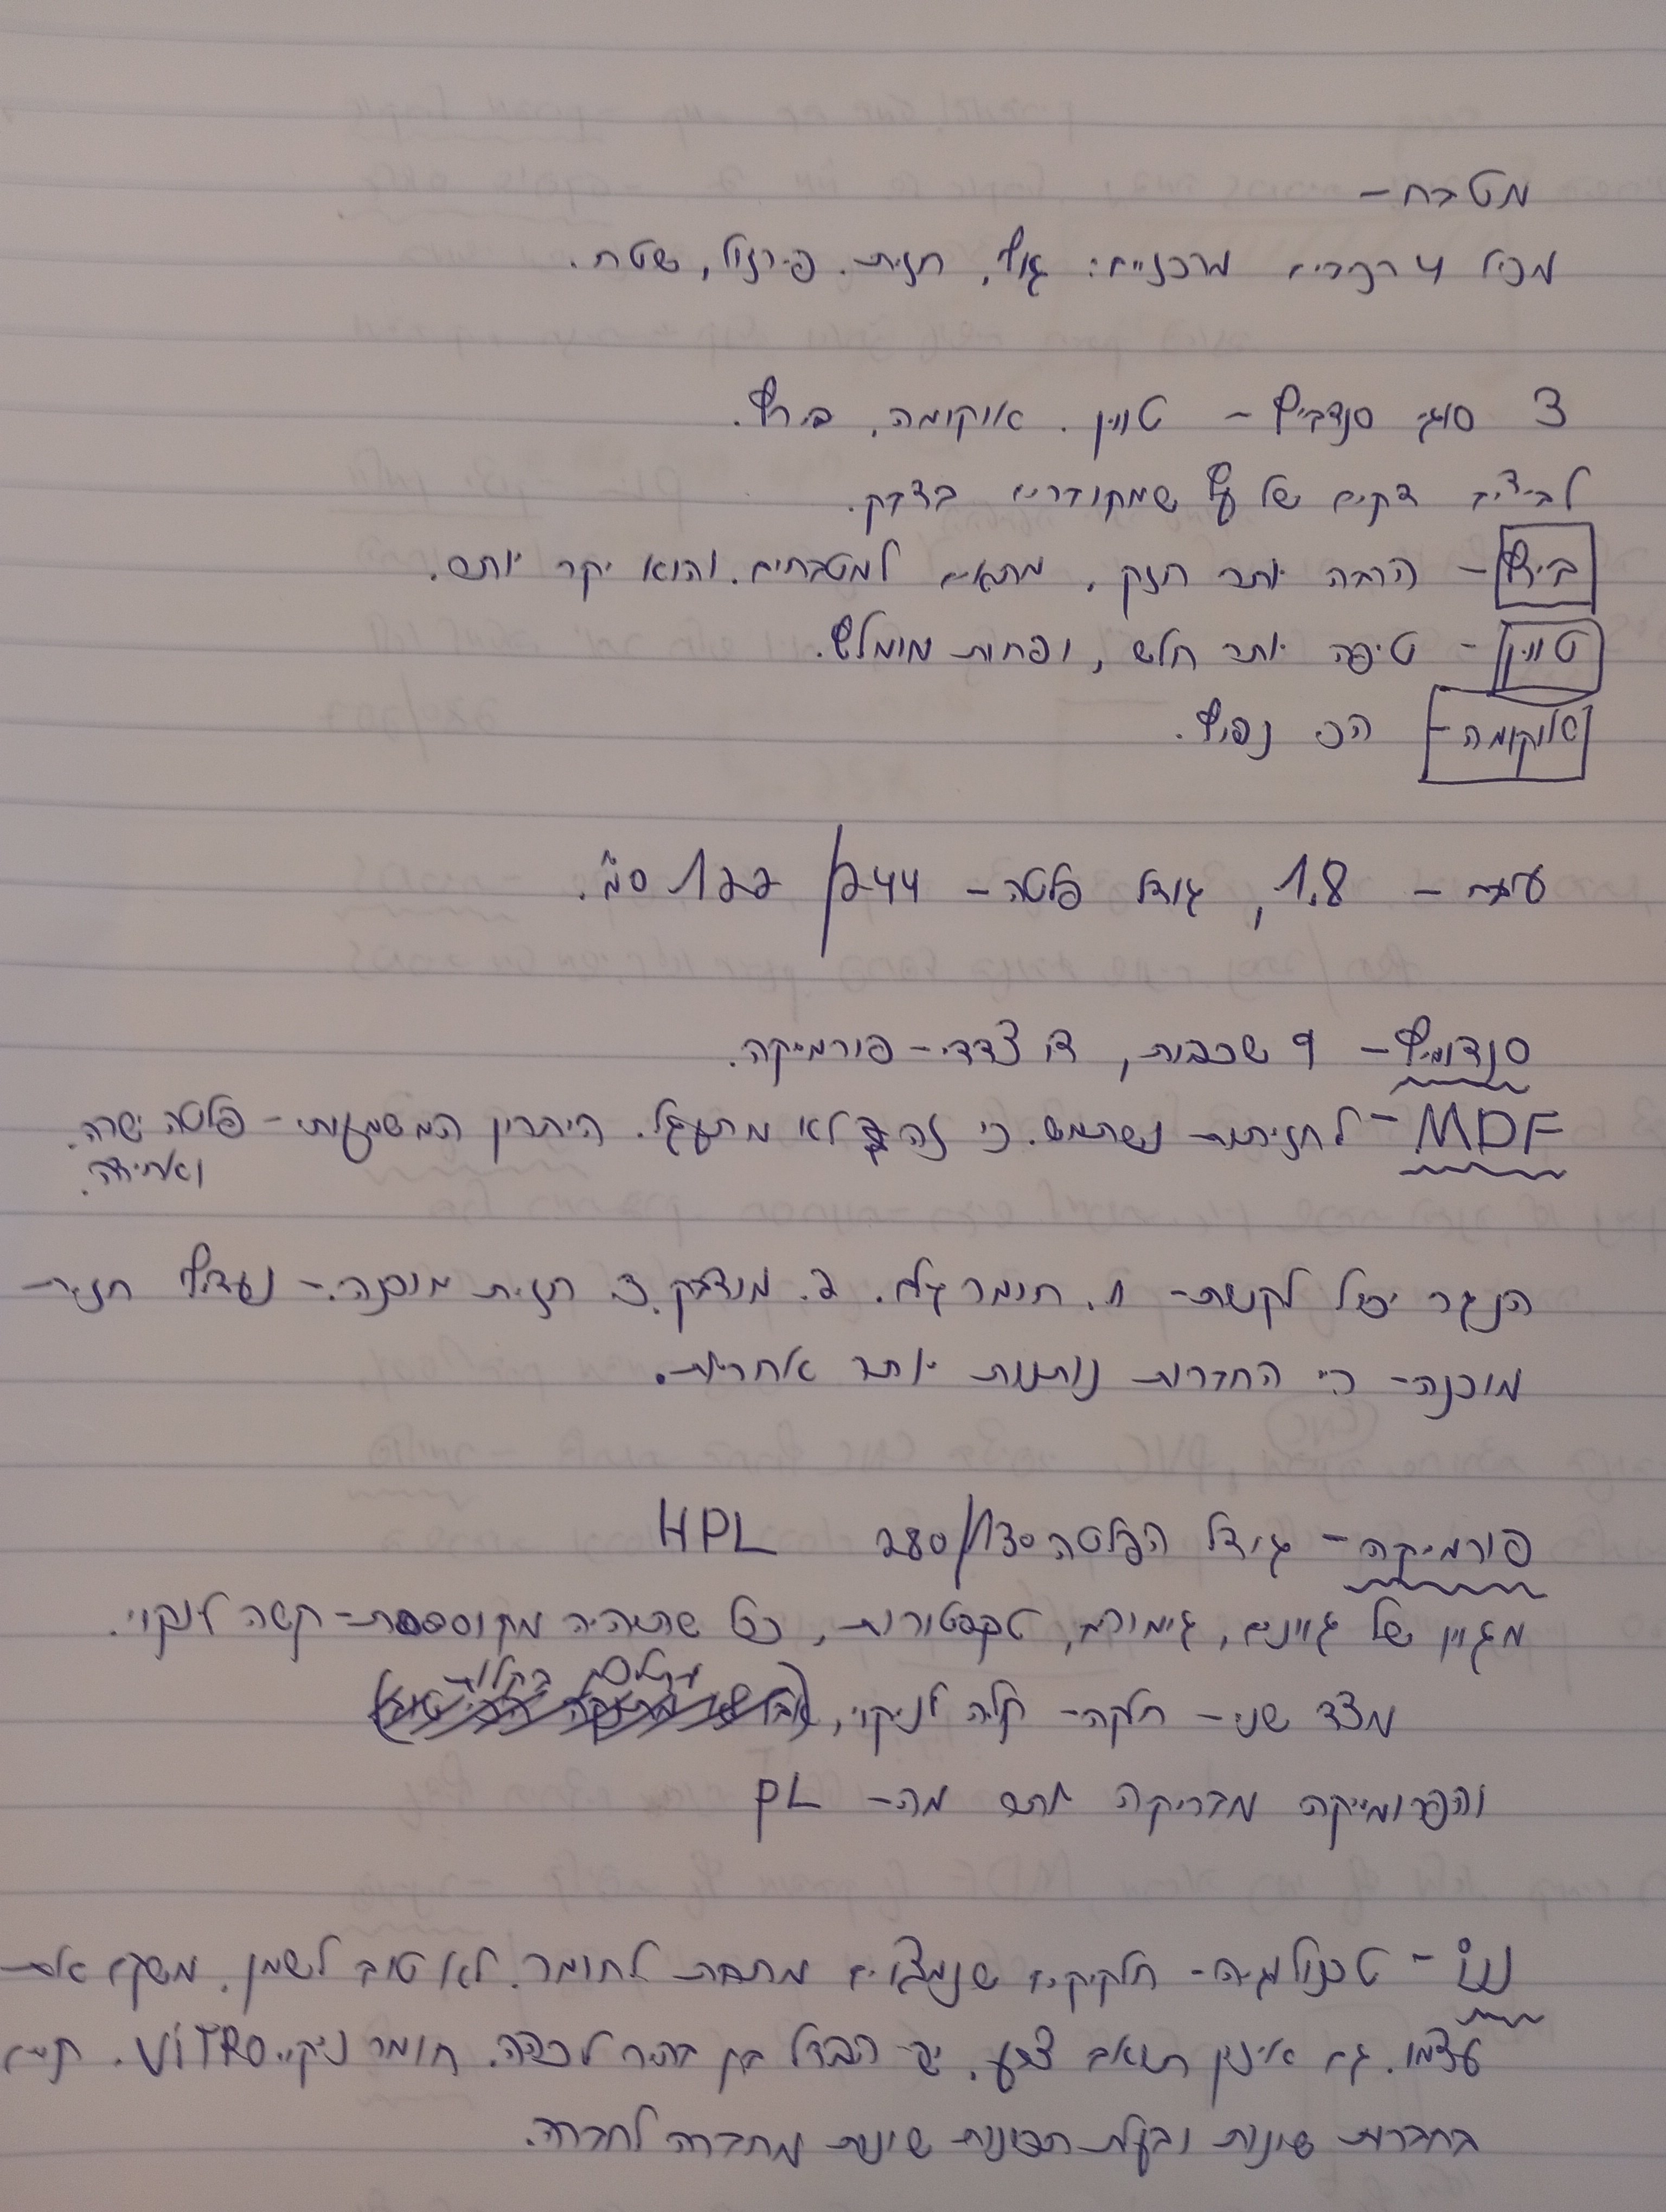 מטבח -
מכיל 4 רכיבים מרכזיים: גוף, חזית. פירזול, שטח.
3 סוגי סנדביץ - טווין. אוקומה, בירץ.
לבידים דקים של עץ שמחוברים בדבק.
בירץ - הרבה יותר חזק, מתאים למטבחים. והוא יקר יותר.
טווין - טיפה יותר חלש, ופחות מומלץ.
אוקומה - הכי נפוץ.
עובי - 1.8, גודל פלטה - 244/122 ס"מ.
סנדוויץ - 9 שכבות, דו צדדי - פורמייקה.
MDF - לחזיתות נשתמש. כי זה לא מתעגל. היתרון המשמעותי - פלטה ישרה.
ואחידה.
הנגר יכול לקנות - 1. חומר גלם. 2. מודבק. 3. חזית מוכנה. - נעדיף חזית
מוכנה - כי החברות נותנות יותר אחריות.
פורמייקה - גודל הפלטה 280/130 HPL
מגוון של גוונים, גימורים, טקסטורות, ככל שתהיה מחוספסת - קשה לנקוי.
מצד שני - חלקה - קלה לניקוי,
והפרומייקה מבריקה יותר מה - PL
ננו - טכנולוגיה - חלקיקים שנמצאים מתחת לחומר. לא טוב לשמן. משקם את
עצמו. גם אינו תואם צבע. יש הבדל בין בהיר לכהה. חומר ניקוי VITRO. קיים
בחברות שונות ובעל תכונות שונות מחברה לחברה.